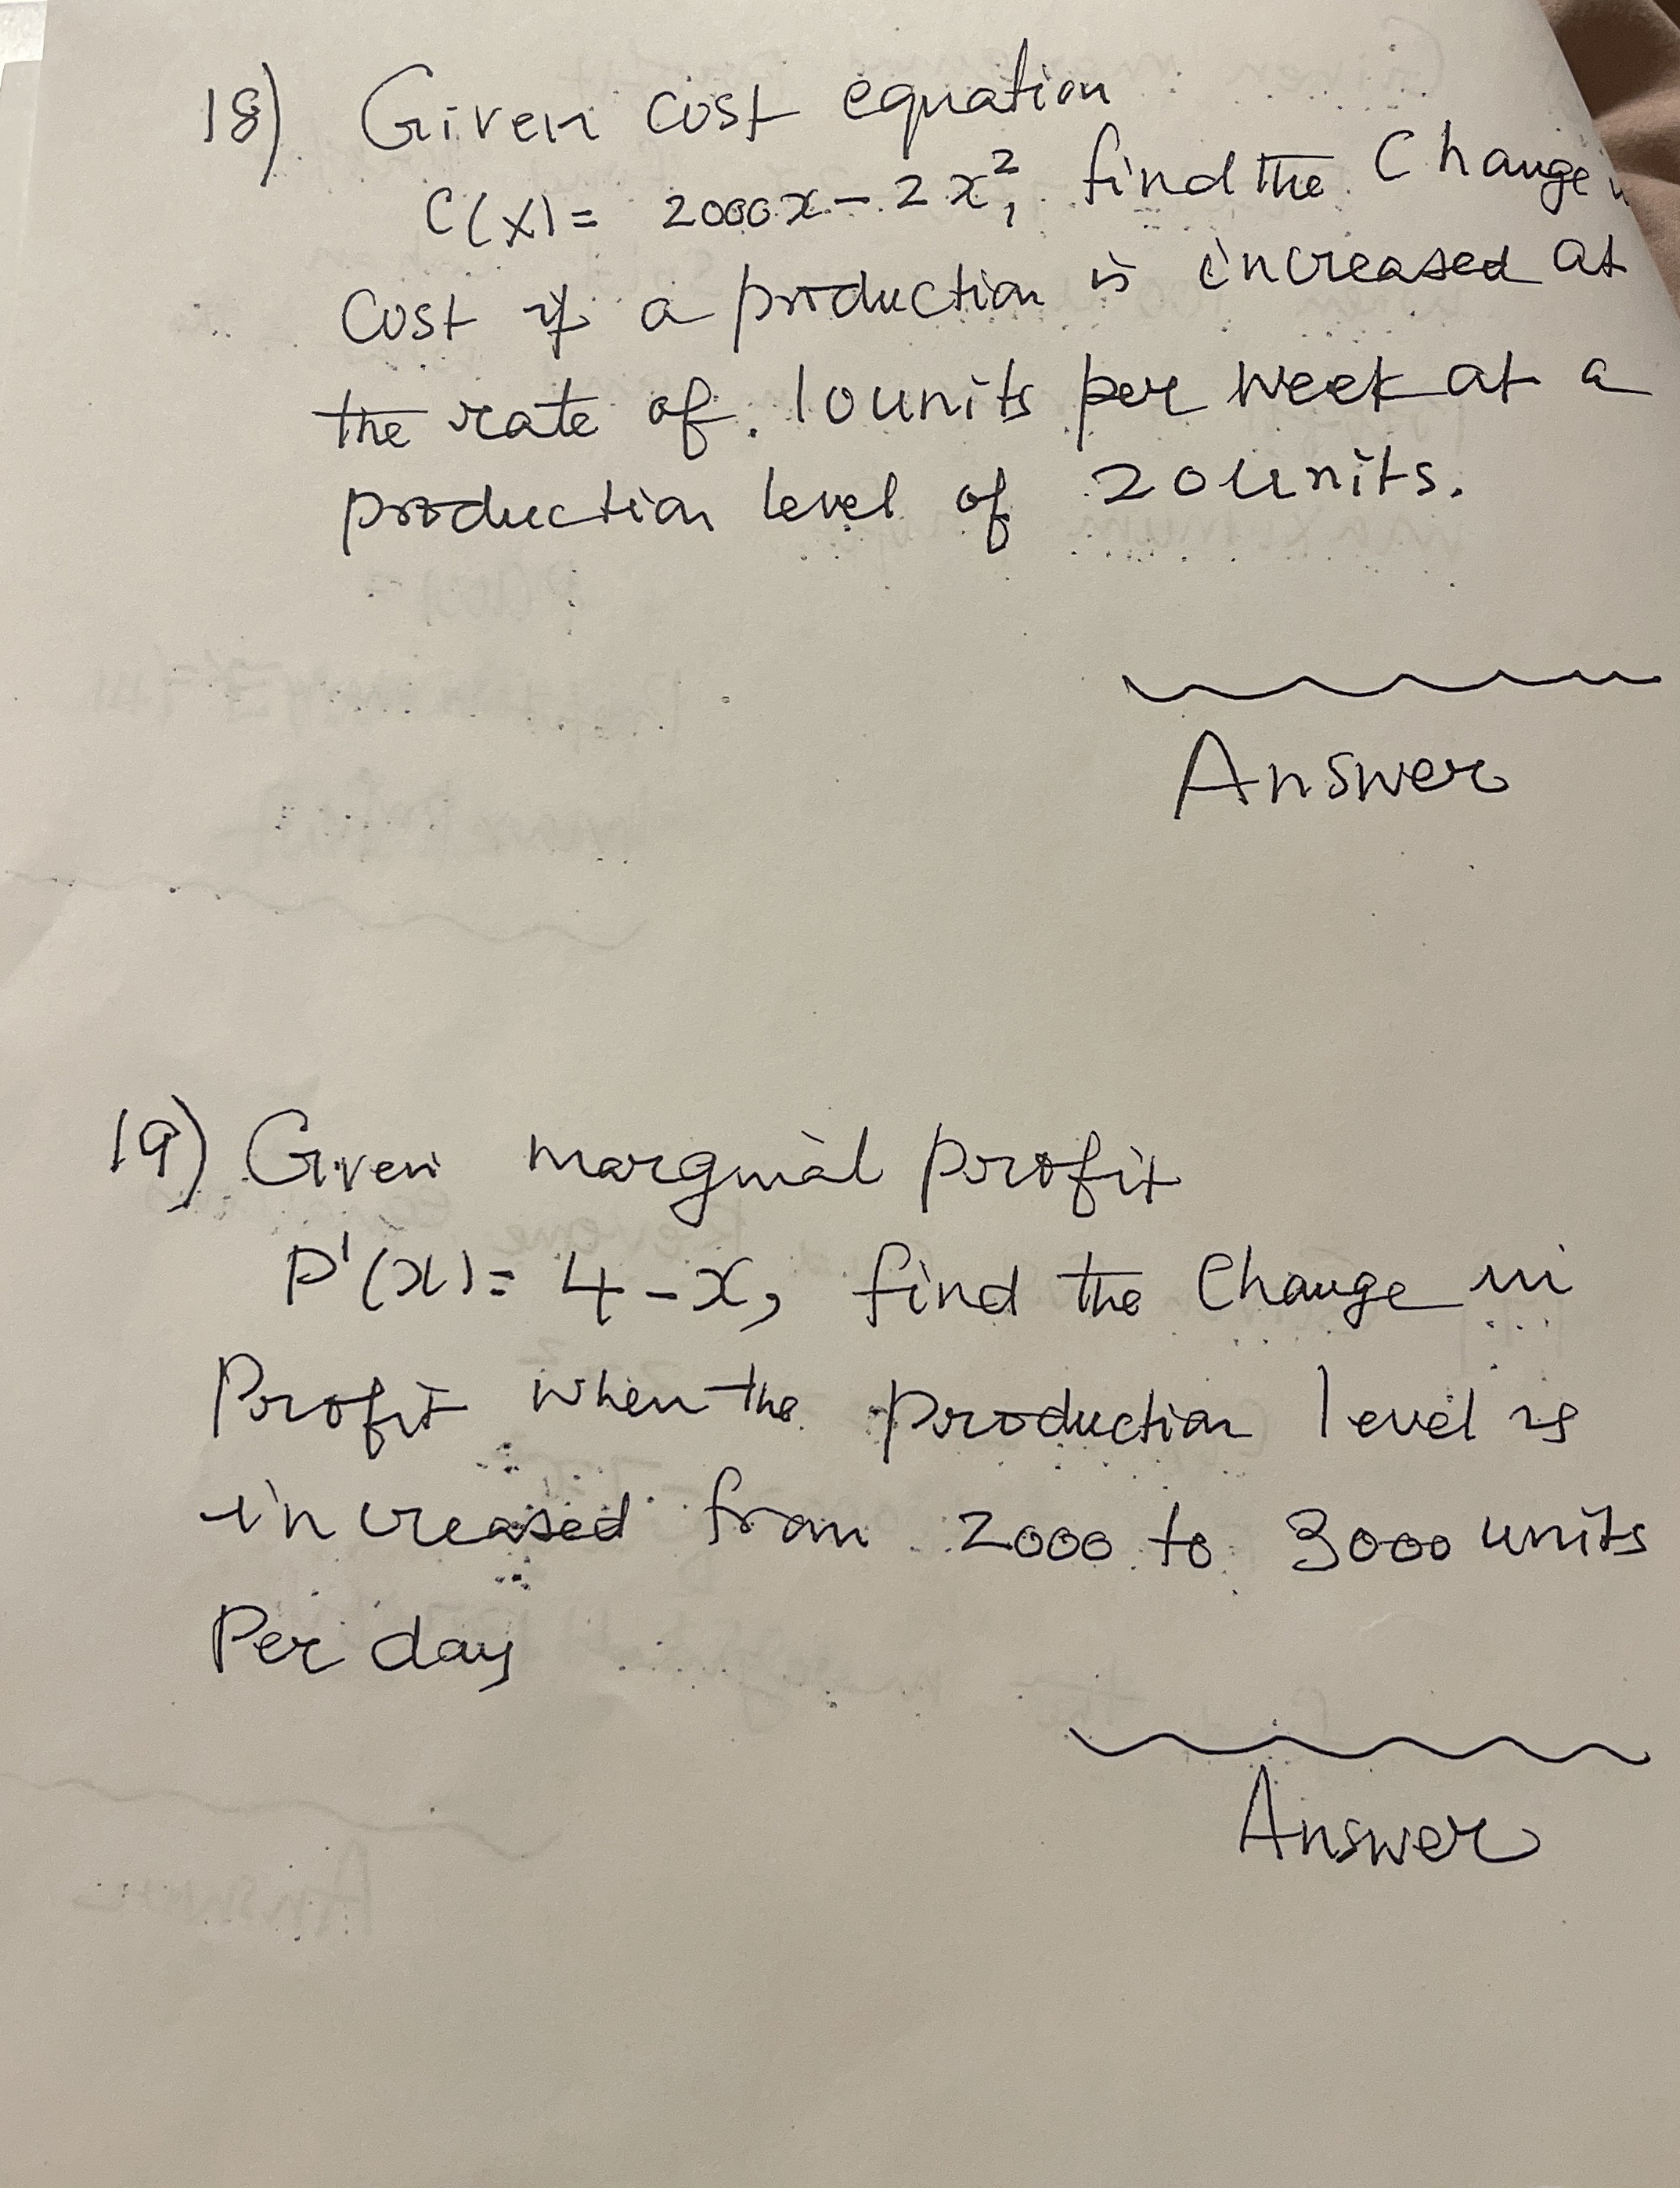 18) Given cost equation
C(x) = 2000x - 2x², find the Change
Cost if a production is increased at
the rate of. 10 units per week at a
production level of 20 units.
Answer
19) Given marginal profit
P'(x) = 4 - x, find the Change in
Profit when the production level is
increased from 2000 to 3000 units
Per day
Answer